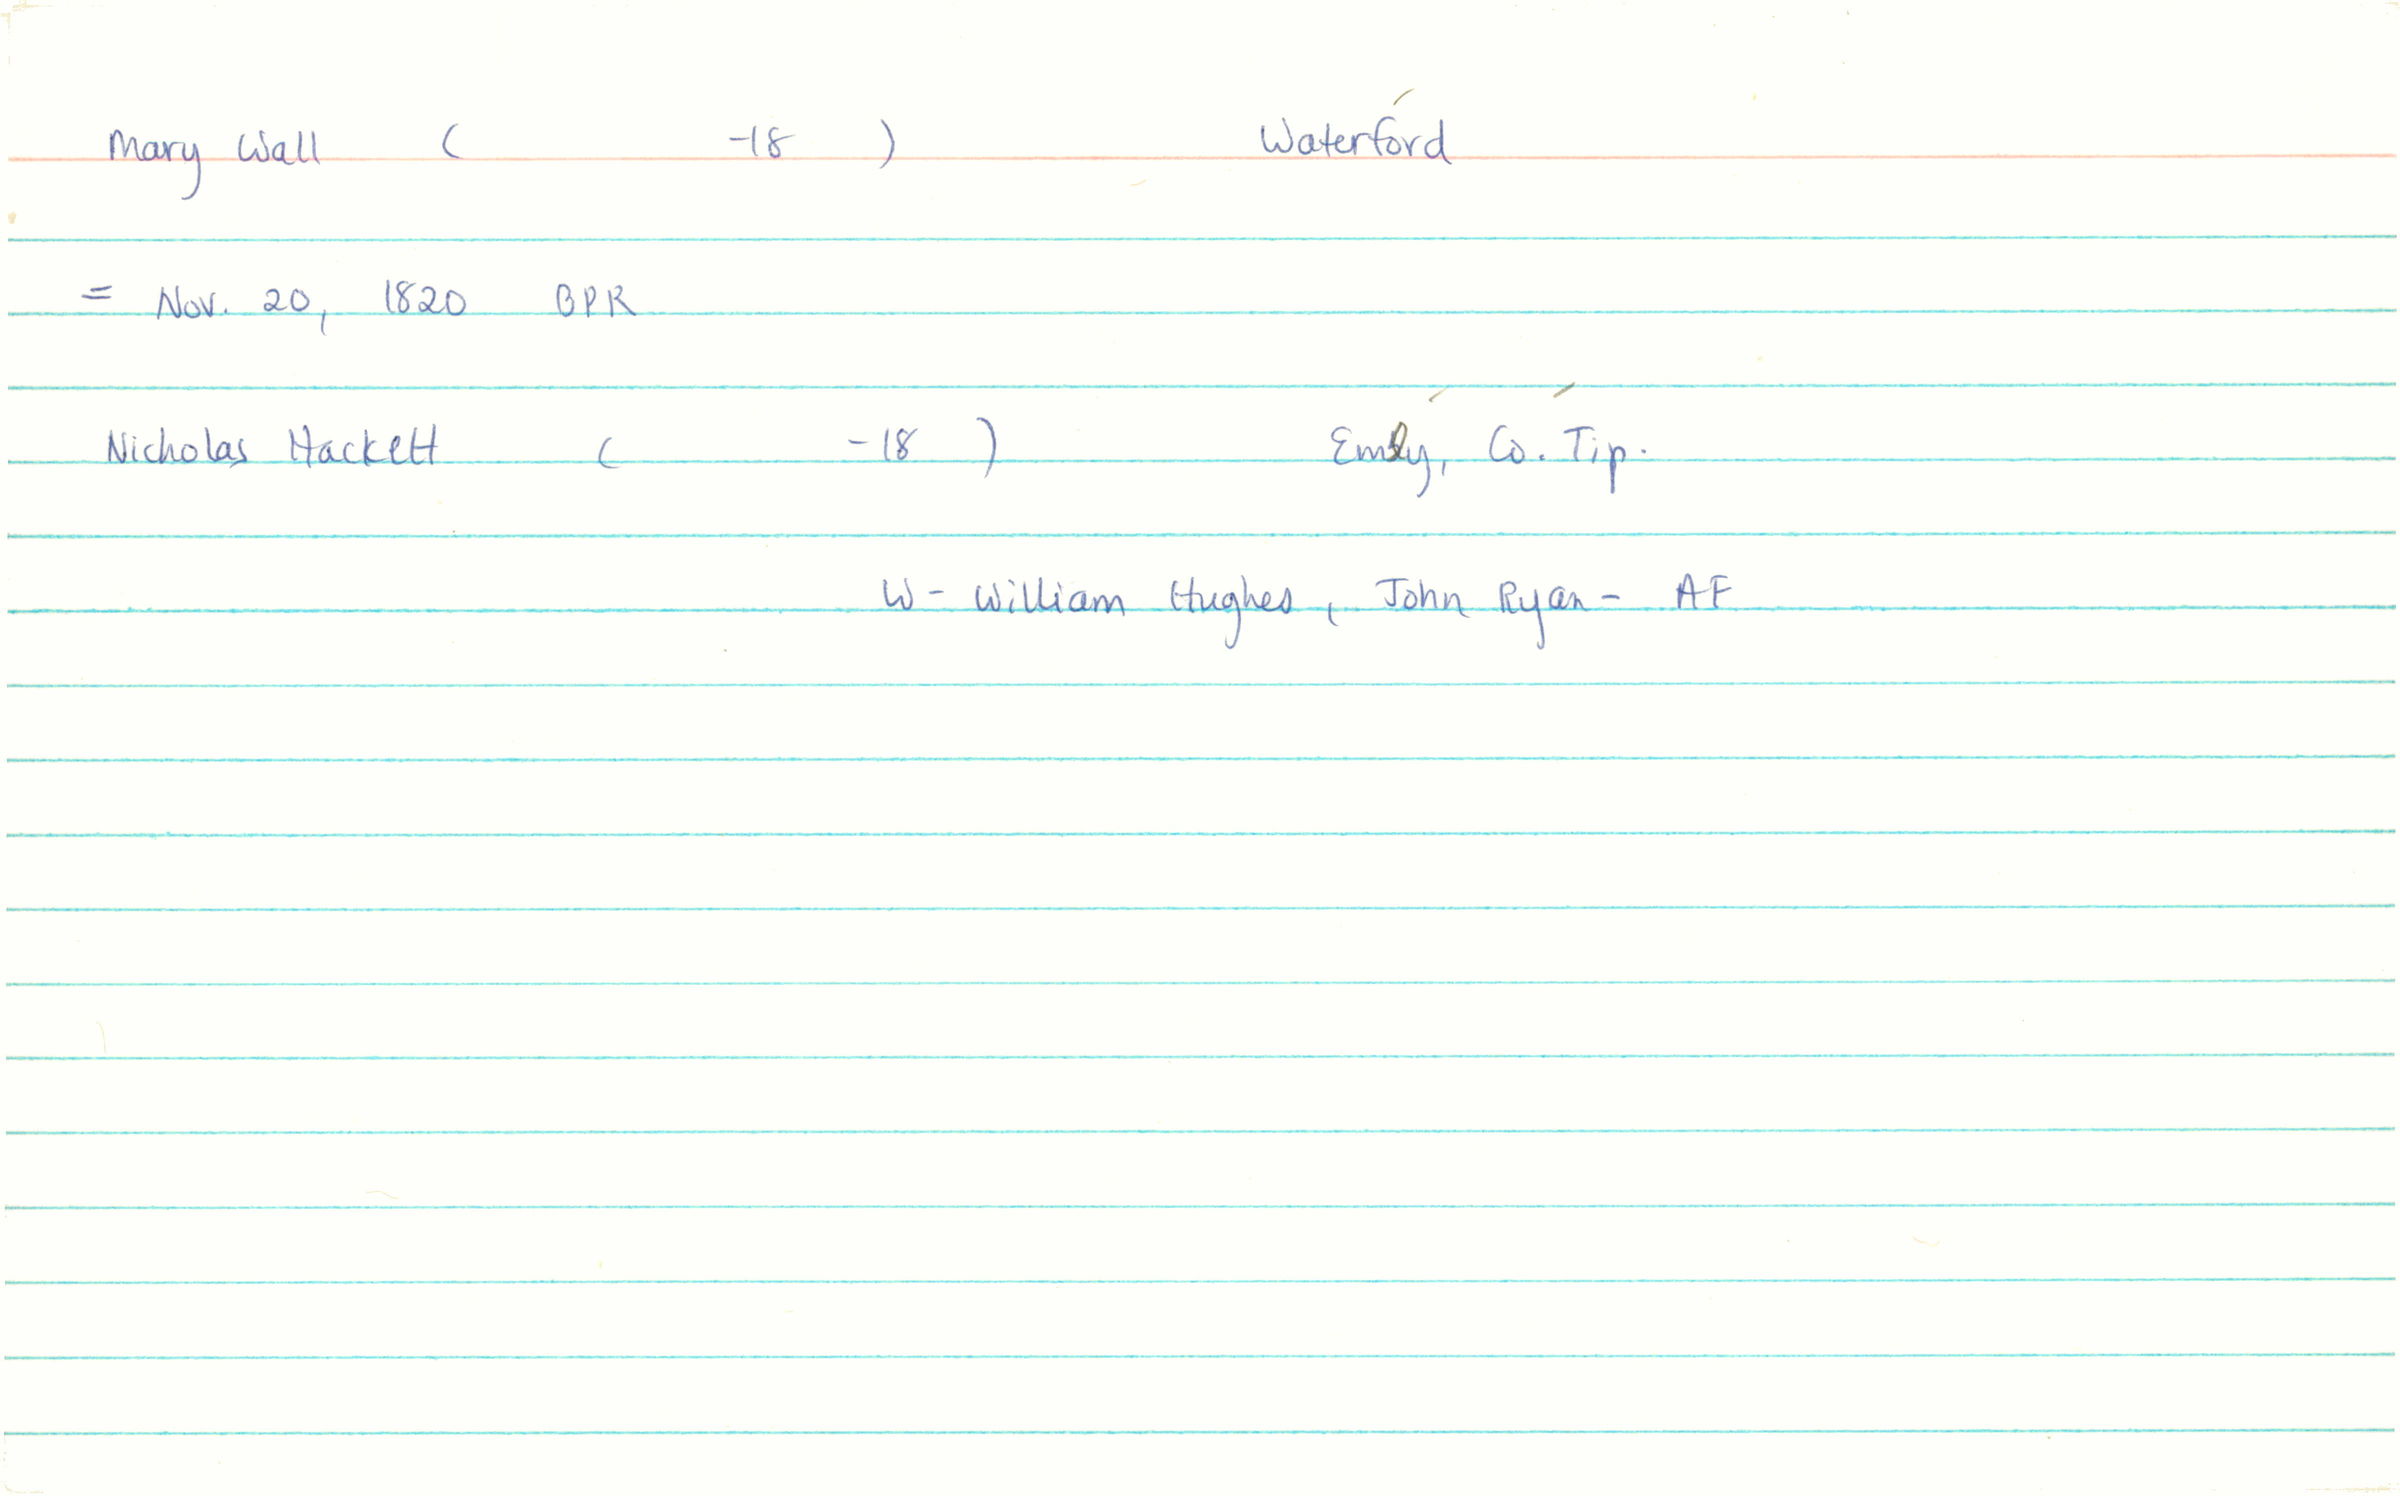 Mary Wall ( -18 ) Waterford
= Nov. 20, 1820 BPR
Nicholas Hackett ( -18 ) Emly, Co. Tip.
W - William Hughes, John Ryan - AF